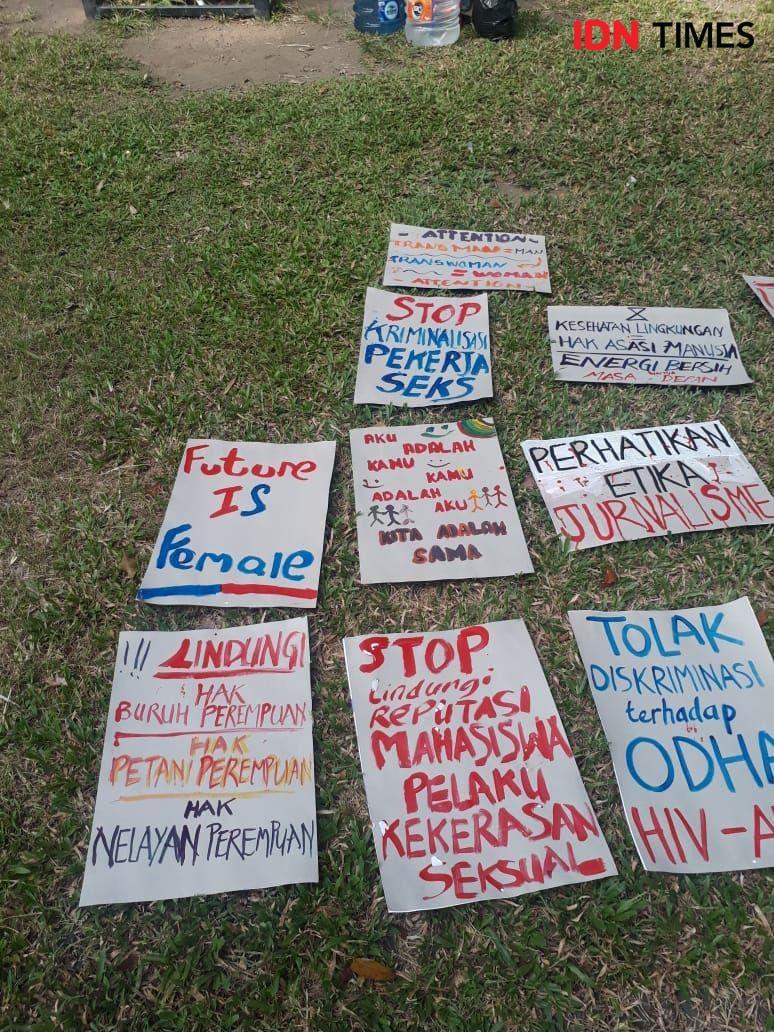 IDN TIMES
- ATTENTION -
TRANSMAN = MAN
TRANSWOMAN
= WOMAN
- ATTENTION -
STOP
KRIMINALISASI
PEKERJA
SEKS
KESEHATAN LINGKUNGAN
HAK ASASI MANUSIA
ENERGI BERSIH
MASA DEPAN
Future
IS
Female
AKU ADALAH
KAMU
KAMU
ADALAH
AKU
KITA ADALAH
SAMA
PERHATIKAN
ETIKA
JURNALISME
!!! LINDUNGI
HAK
BURUH PEREMPUAN
HAK
PETANI PEREMPUAN
HAK
NELAYAN PEREMPUAN
STOP
Lindungi
REPUTASI
MAHASISWA
PELAKU
KEKERASAN
SEKSUAL
TOLAK
DISKRIMINASI
terhadap
ODHA
HIV-A